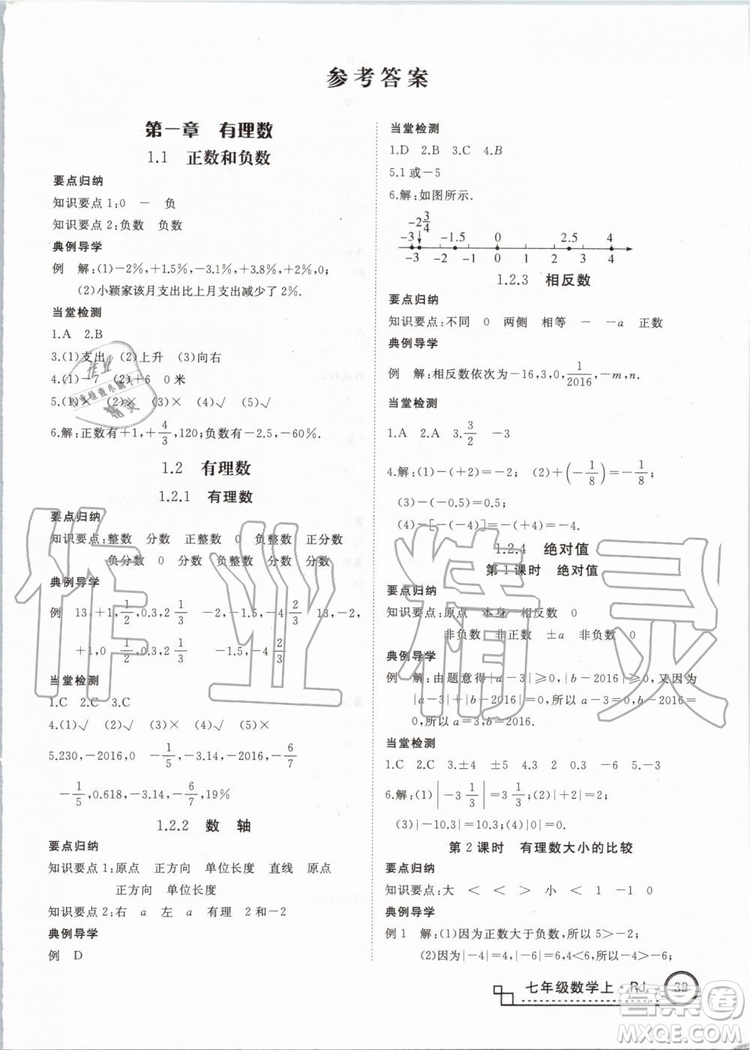 参考答案
第一章 有理数
1.1 正数和负数
要点归纳
知识要点1:0 － 负
知识要点2:负数 负数
典例导学
例 解:(1)－2%,＋1.5%,－3.1%,＋3.8%,＋2%,0;
(2)小颖家该月支出比上月支出减少了2%.
当堂检测
1.A 2.B
3.(1)支出 (2)上升 (3)向右
4.(1)－7 (2)＋6 0米
5.(1)× (2)× (3)× (4)√ (5)√
6.解:正数有＋1,＋4/3,120;负数有－2.5,－60%.
1.2 有理数
1.2.1 有理数
要点归纳
知识要点:整数 分数 正整数 0 负整数 正分数
负分数 0 分数 0 负整数 负分数
典例导学
例 13,＋1 1/2,0.3,2 1/3 －2,－1.5,－4 1/3 13,－2,
＋1,0 1/2,0.3,2 1/3 －1.5,－4 1/3
当堂检测
1.C 2.C 3.C
4.(1)√ (2)√ (3)× (4)× (5)×
5.230,－2016,0 －1/5,－3.14,－2016,－6/7
－1/5,0.618,－3.14,－6/7,19%
1.2.2 数 轴
要点归纳
知识要点1:原点 正方向 单位长度 直线 原点
正方向 单位长度
知识要点2:右 a 左 a 有理 2和－2
典例导学
例 D
当堂检测
1.D 2.B 3.C 4.B
5.1或－5
6.解:如图所示.
－2 3/4
－3 －2 －1 0 1 2 2.5 3 4
1.2.3 相反数
要点归纳
知识要点:不同 0 两侧 相等 － －a 正数
典例导学
例 解:相反数依次为－16,3,0,1/2016,－m,n.
当堂检测
1.A 2.A 3.3/2 －3
4.解:(1)－(＋2)＝－2; (2)＋(－1/8)＝－1/8;
(3)－(－0.5)＝0.5;
(4)－[－(－4)]＝－(＋4)＝－4.
1.2.4 绝对值
第1课时 绝对值
要点归纳
知识要点:原点 本身 相反数 0
非负数 非正数 ±a 非负数 0
典例导学
例 解:由题意得|a－3|≥0,|b－2016|≥0,所以
|a－3|＝|b－2016|＝0,所以a＝3,b＝2016.
当堂检测
1.C 2.C 3.±4 ±5 4.3 0 －3 5.－3
6.解:(1)|－3 1/3|＝3 1/3; (2)|＋2|＝2;
(3)|10.3|＝10.3; (4)|0|＝0.
第2课时 有理数大小的比较
要点归纳
知识要点:大 ＜ ＜ ＞ 小 ＞ 1 0
典例导学
例1 解:(1)因为正数大于负数,所以5＞－2;
(2)因为|－4|＝4,|－6|＝6,4＜6,所以－4＞－6;
七年级数学上·RJ 39
作业精灵
答案圈
MXQE.COM